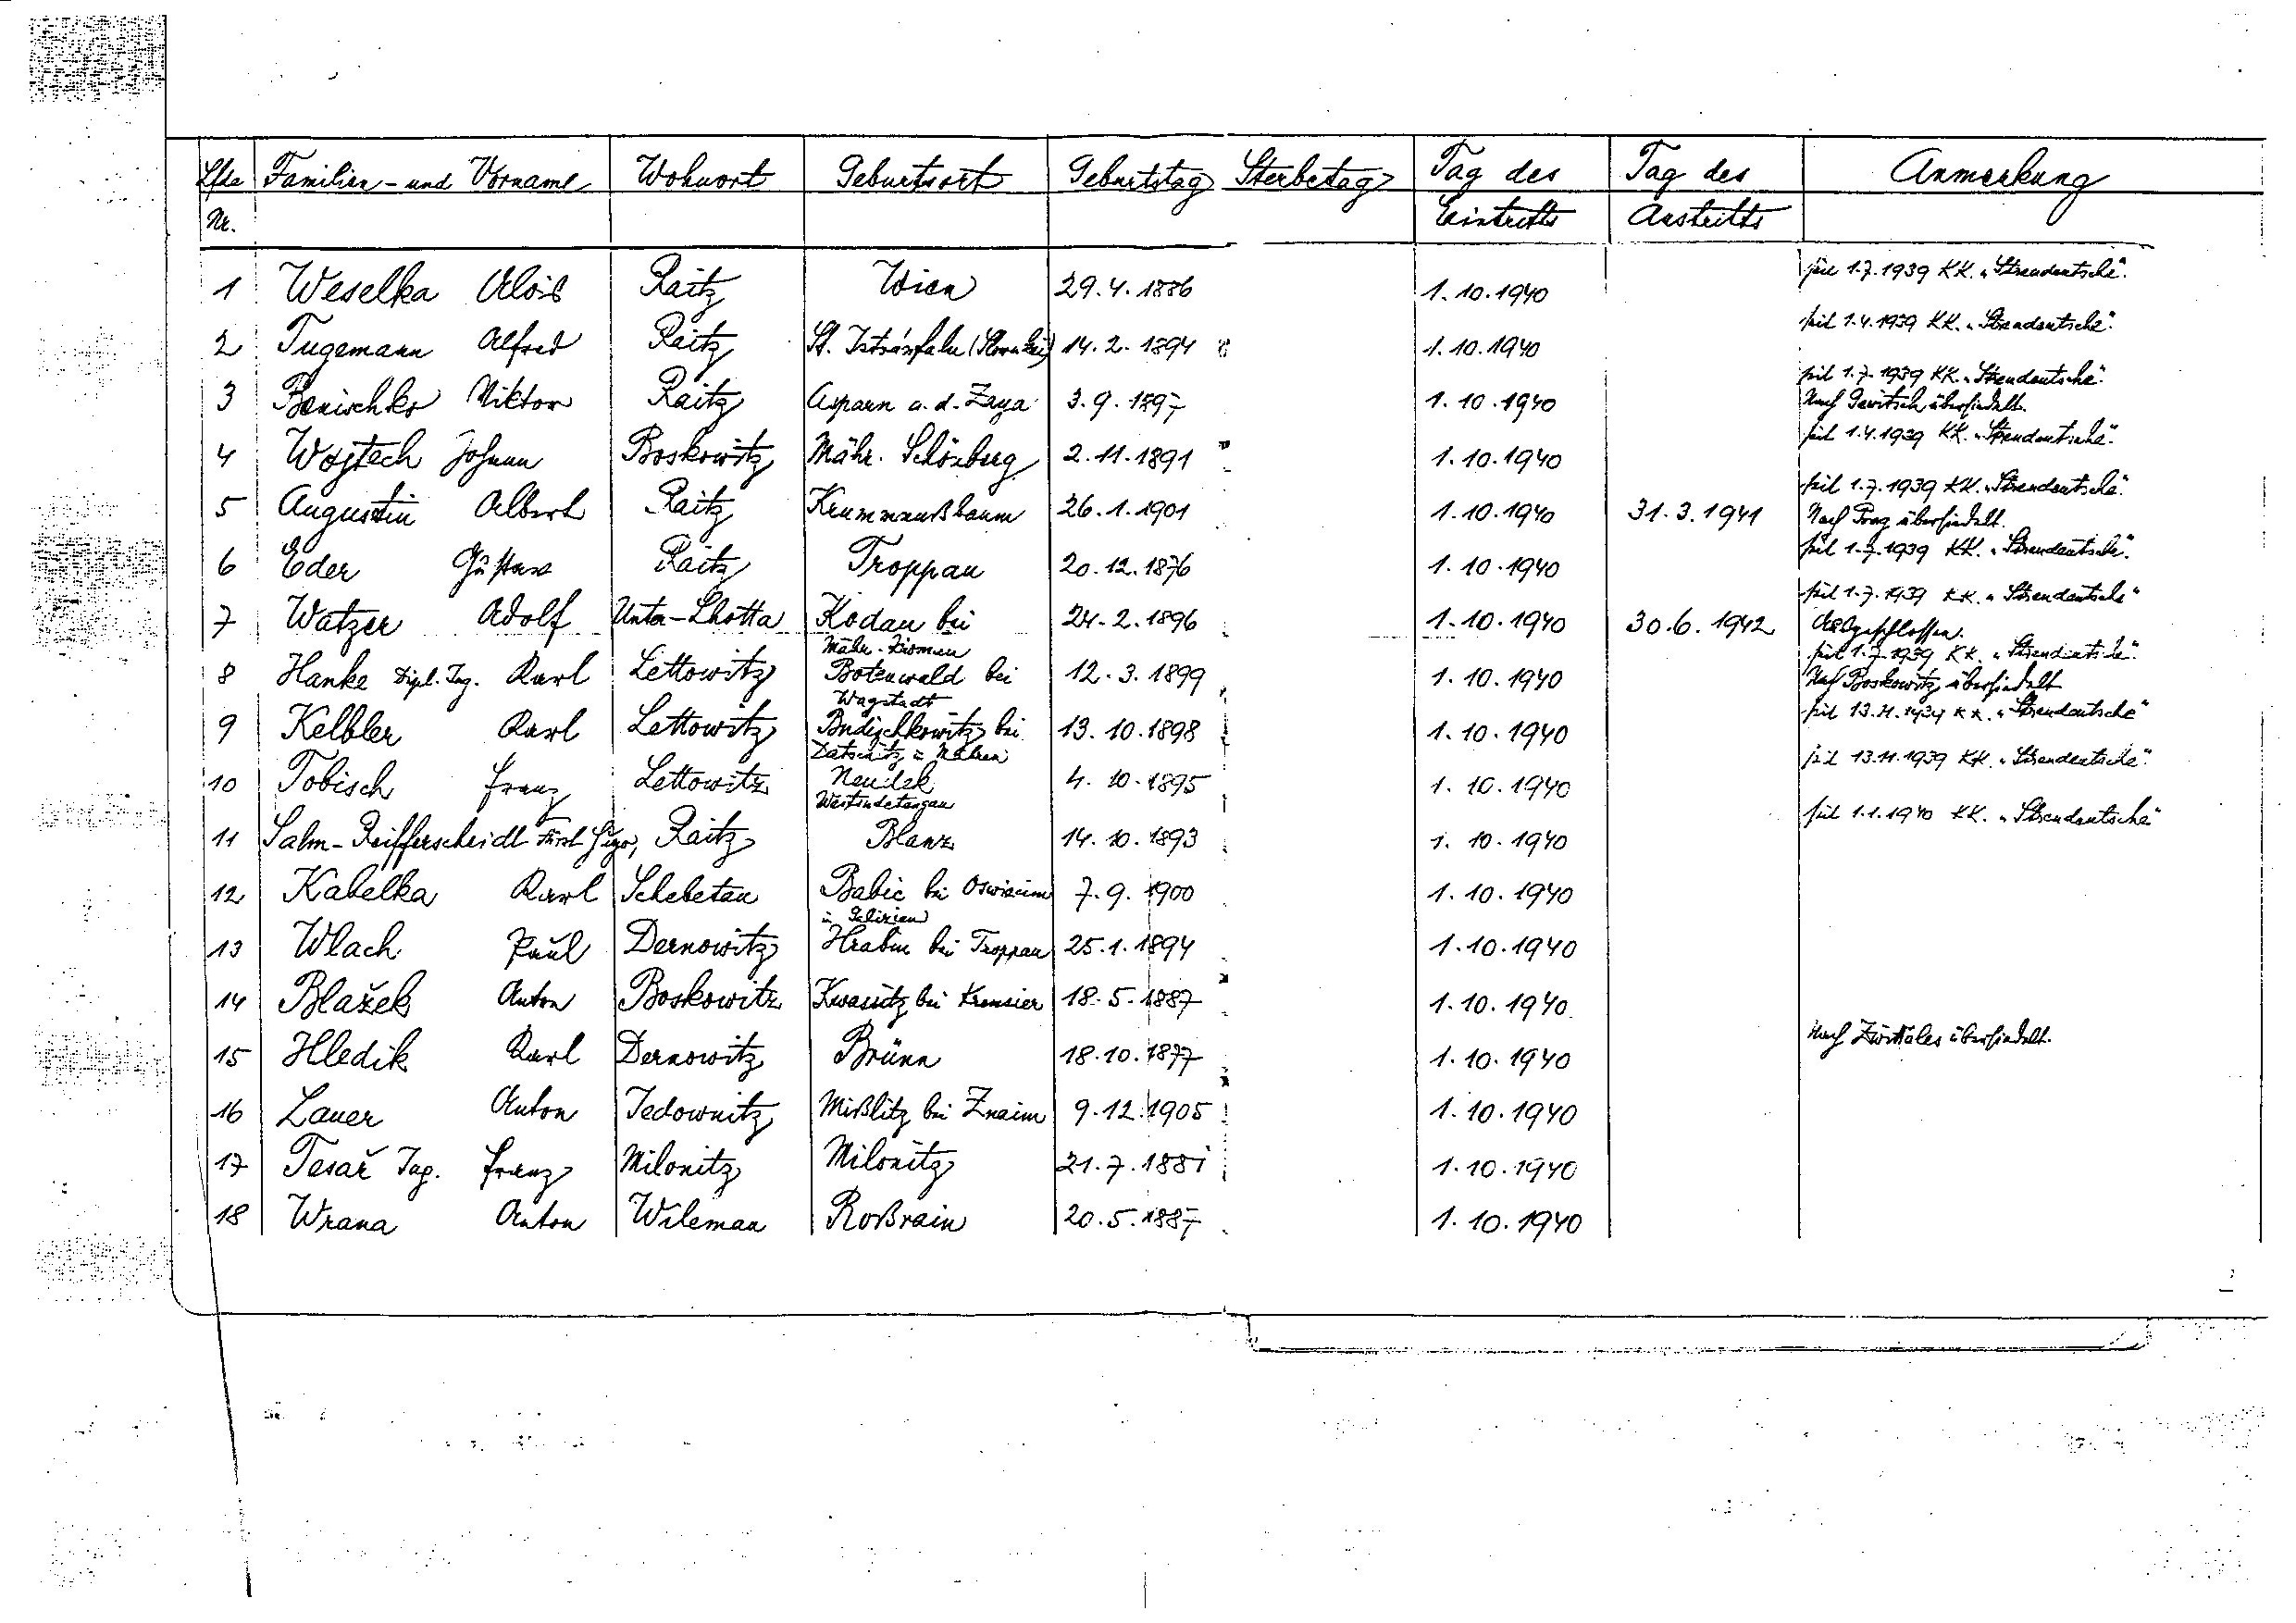 Lfde Familien- und Vorname Wohnort Geburtsort Geburtstag Sterbetag Tag des Tag des Anmerkung
Nr. Eintritts Austritts
seit 1.7.1939 KK. „Streudeutsche“.
1 Weselka Alois Raitz Wien 29.4.1886 1.10.1940
seit 1.4.1939 KK. „Streudeutsche“.
2 Tugemann Alfred Raitz St. 14.2.1894 1.10.1940
seit 1.7.1939 KK. „Streudeutsche“.
3 Benischko Viktor Raitz Asparn a. d. Zaya 3.9.1897 1.10.1940 Nach Gewitsch übersiedelt.
seit 1.4.1939 KK. „Streudeutsche“.
4 Wojtech Johann Boskowitz Mähr. Schönberg 2.11.1891 1.10.1940
seit 1.7.1939 KK. „Streudeutsche“.
5 Augustin Albert Raitz Krummnußbaum 26.1.1901 1.10.1940 31.3.1941 Nach Prag übersiedelt.
seit 1.7.1939 KK. „Streudeutsche“.
6 Eder Gustav Raitz Troppau 20.12.1876 1.10.1940
seit 1.7.1939 KK. „Streudeutsche“
7 Watzer Adolf Unter-Lhotta Kodau bei 24.2.1896 1.10.1940 30.6.1942 Ausgeschlossen.
Mähr. Kromau seit 1.7.1939 KK. „Streudeutsche“.
8 Hanke Dipl. Ing. Karl Lettowitz Botenwald bei 12.3.1899 1.10.1940 Nach Boskowitz übersiedelt
Wagstadt seit KK. „Streudeutsche“
9 Kelbler Karl Lettowitz Budischkowitz bei 13.10.1898 1.10.1940
Datschitz in Mähren seit 13.11.1939 KK. „Streudeutsche“.
10 Tobisch Franz Lettowitz Neudek 4.10.1895 1.10.1940
Westsudetengau seit 1.1.1940 KK. „Streudeutsche“
11 Salm-Reifferscheidt Fürst Hugo, Raitz Blanz 14.10.1893 1.10.1940
12 Kabelka Karl Schebetau Babic bei Oswiecim 7.9.1900 1.10.1940
in Galizien
13 Wlach Paul Dernowitz Hrabin bei Troppau 25.1.1894 1.10.1940
14 Blažek Anton Boskowitz Kwassitz bei Kremsier 18.5.1887 1.10.1940
15 Hledik Karl Dernowitz Brünn 18.10.1877 1.10.1940 Nach übersiedelt.
16 Lauer Anton Jedownitz Mißlitz bei Znaim 9.12.1905 1.10.1940
17 Tesař Ing. Franz Milonitz Milonitz 21.7.1881 1.10.1940
18 Wrana Anton Wileman Roßrain 20.5.1887 1.10.1940